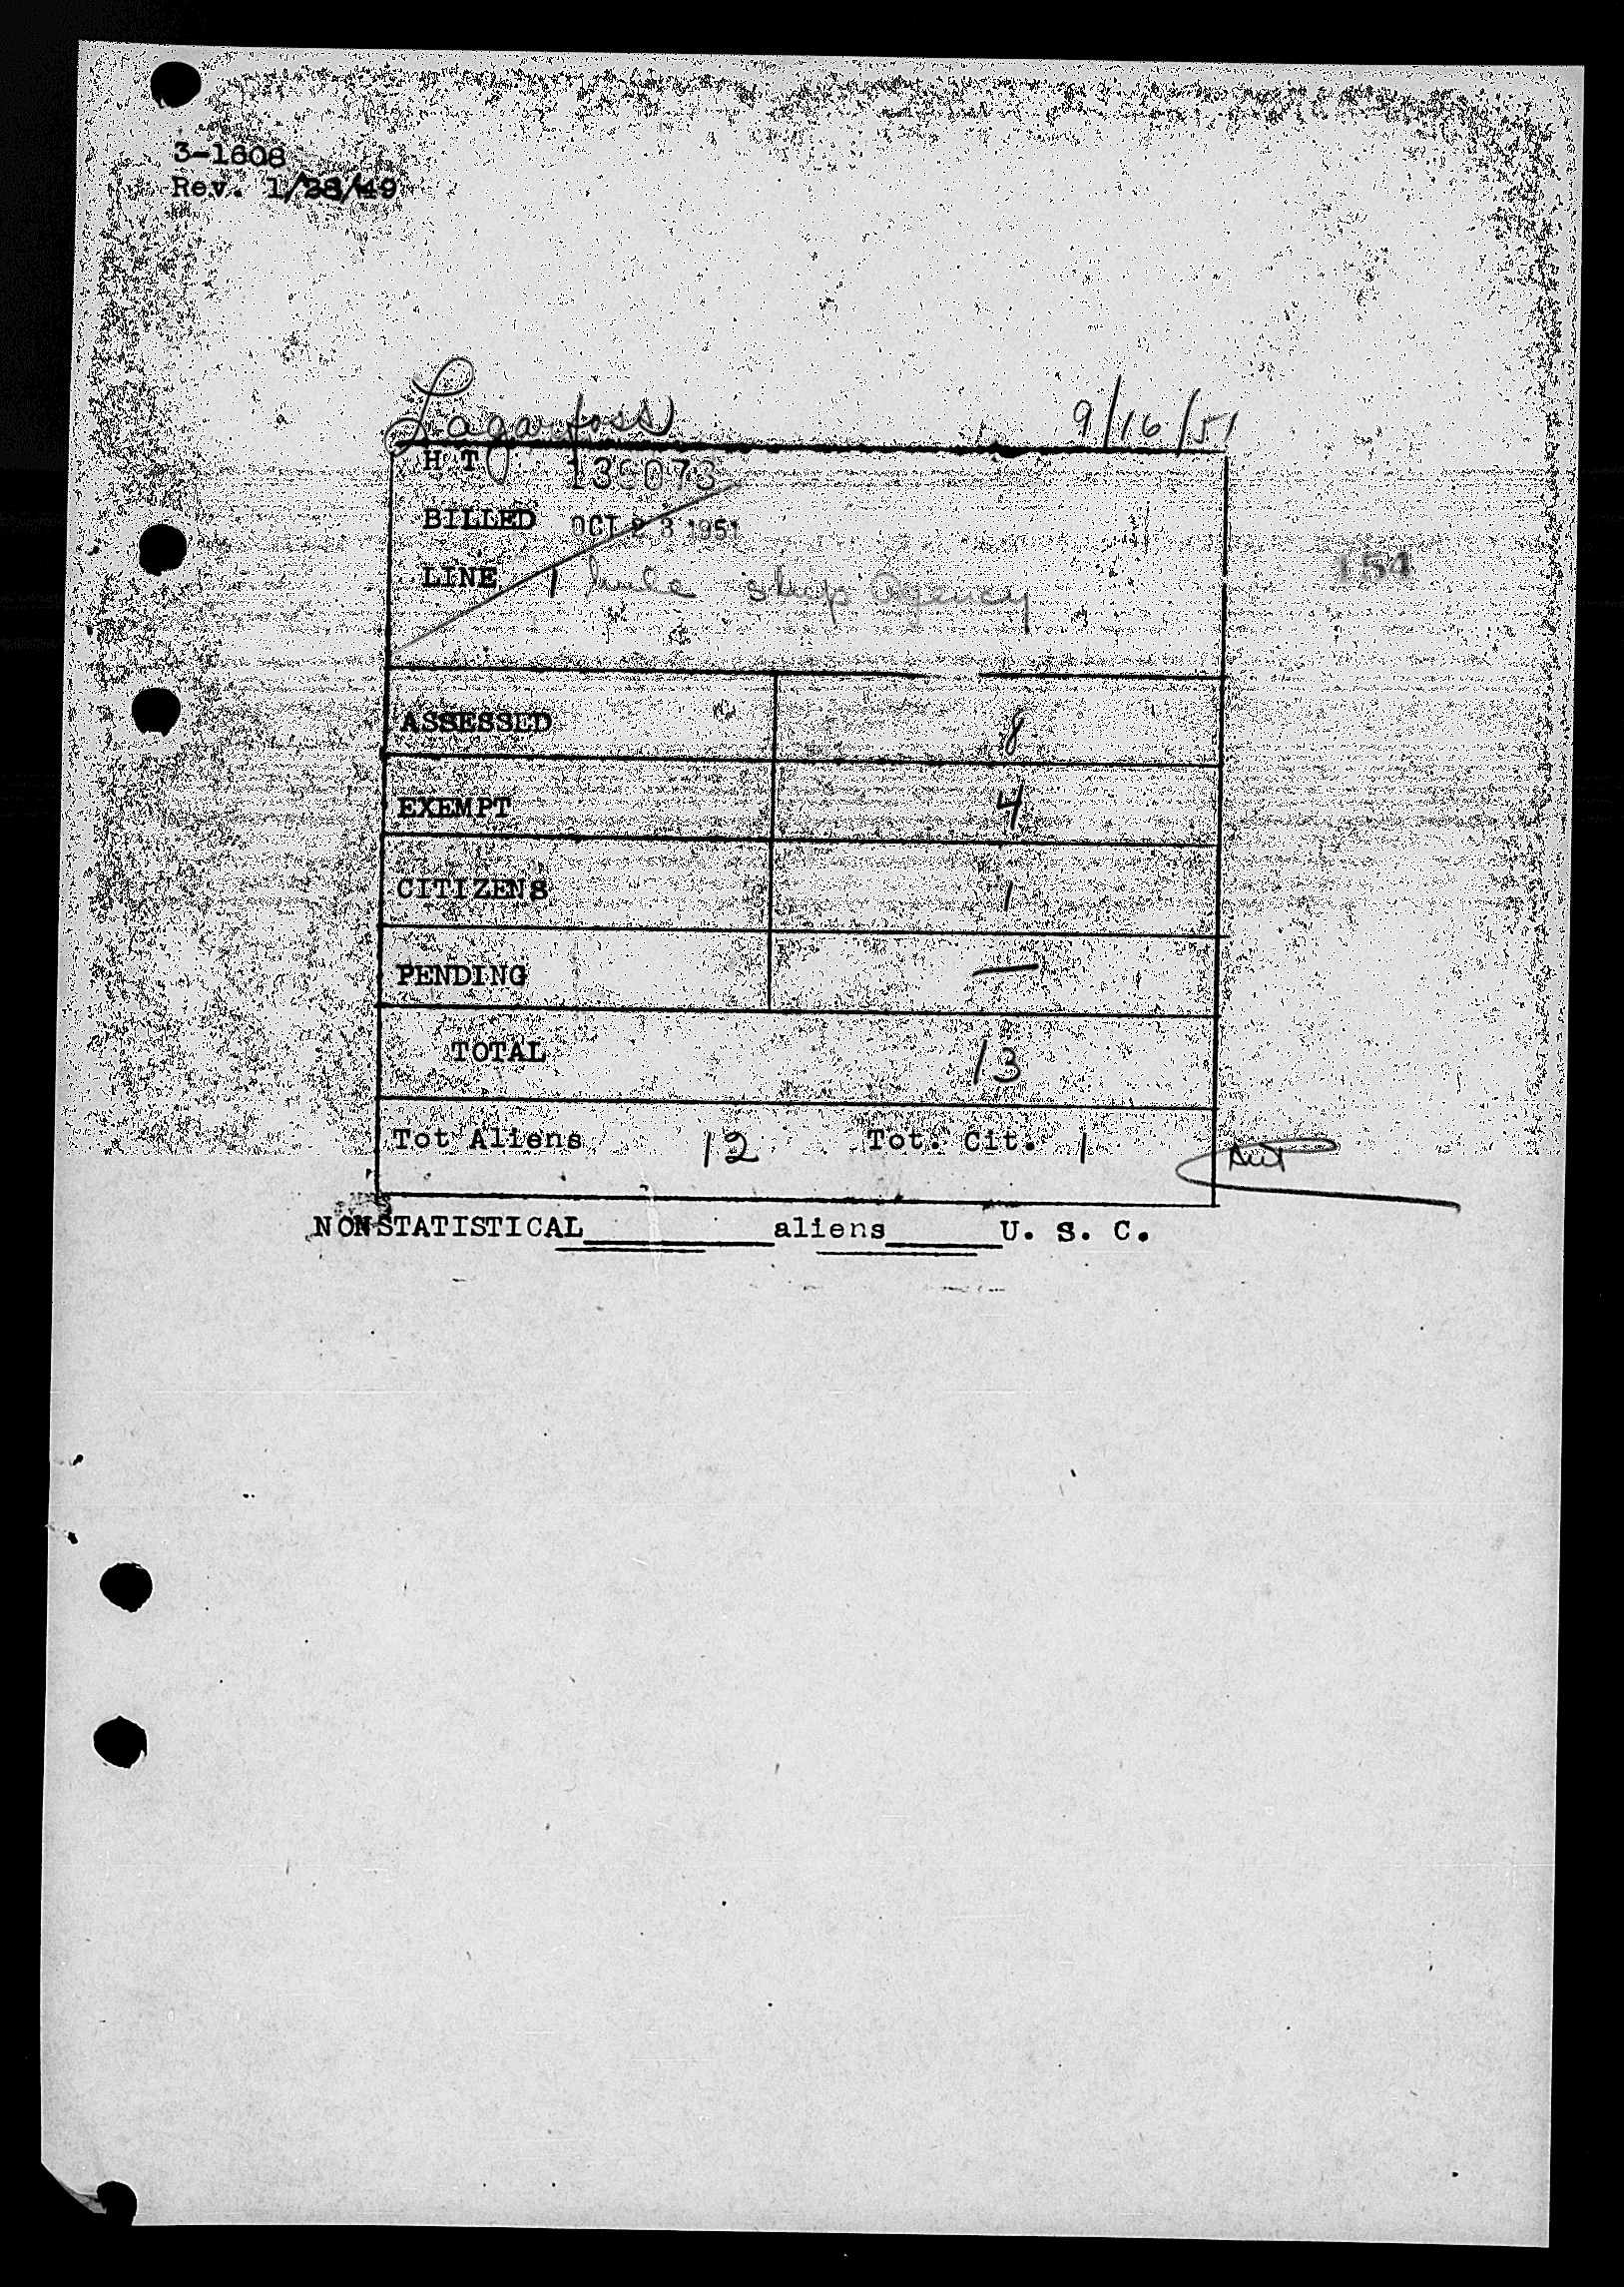 3-1608
Rev. 1/28/49
Lagarfoss 9/16/51
H T 136073
BILLED OCT 23 1951
LINE ship Agency
154
ASSESSED 8
EXEMPT 4
CITIZENS 1
PENDING —
TOTAL 13
Tot Aliens 12 Tot. Cit. 1
NONSTATISTICAL________aliens_____U. S. C.